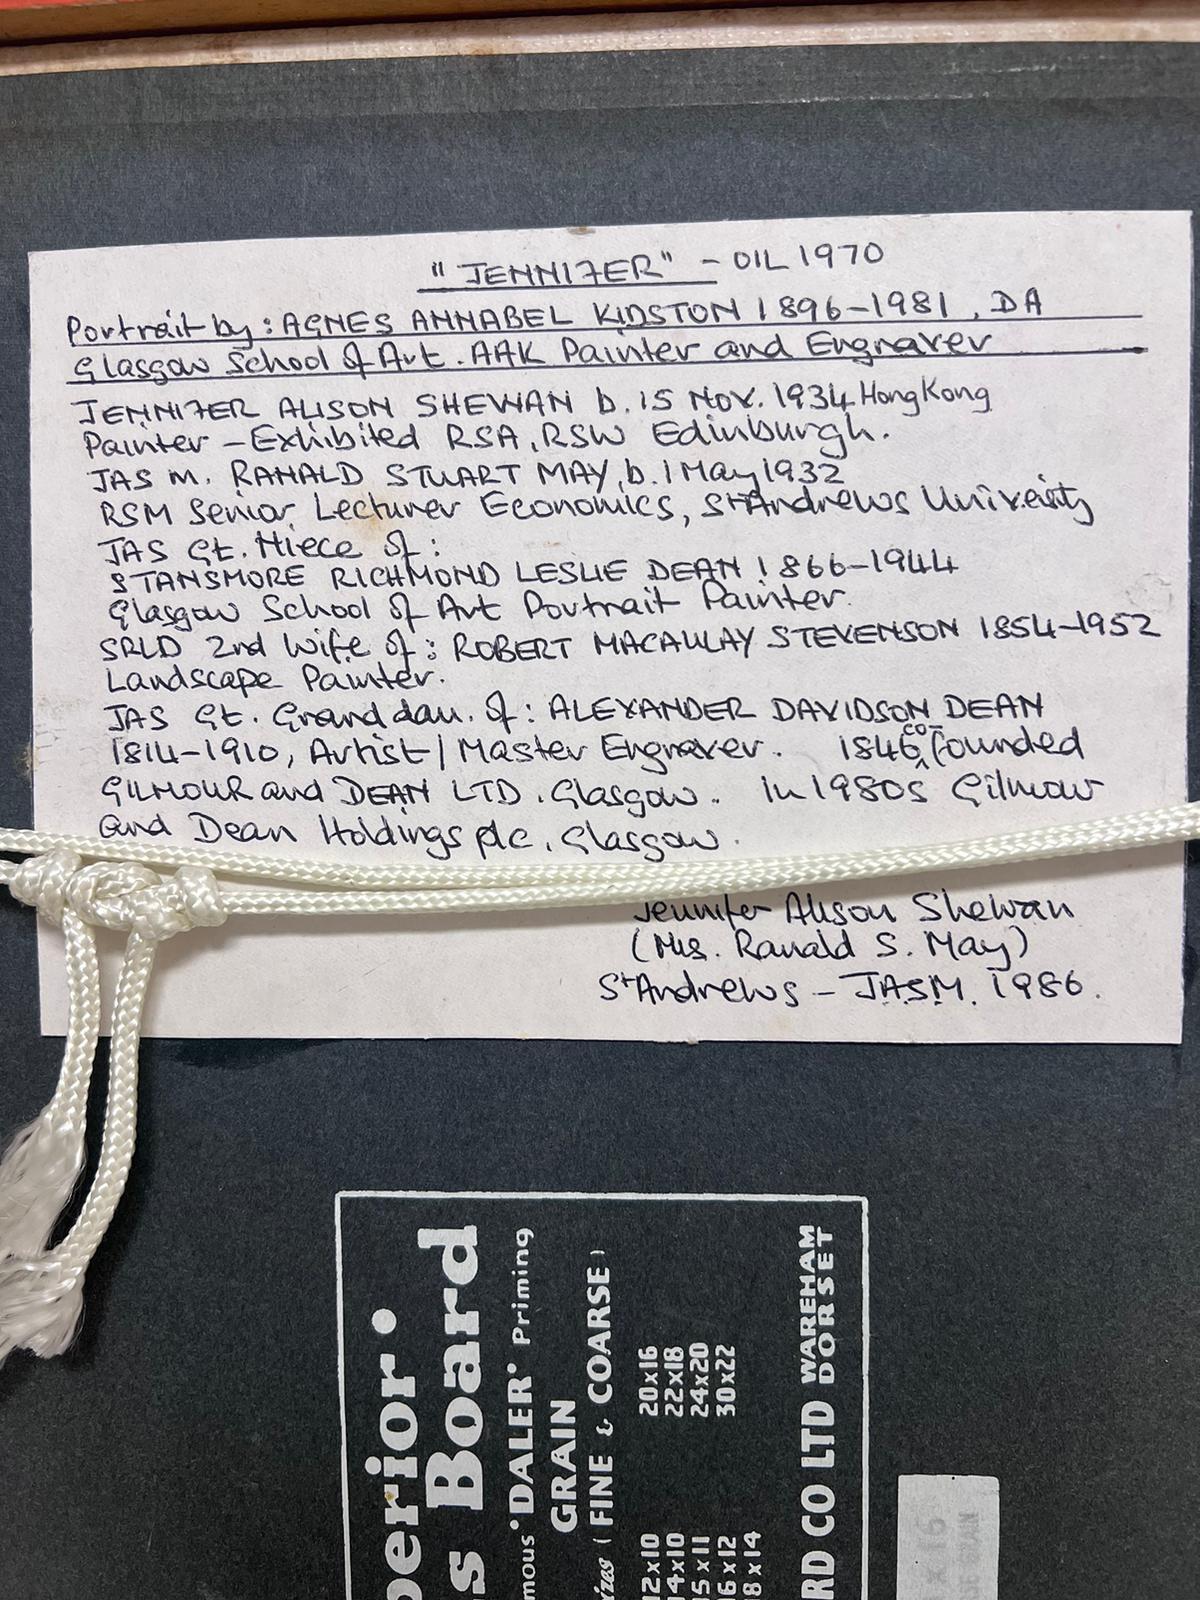 "JENNIFER" - OIL 1970
Portrait by: AGNES ANNABEL KIDSTON 1896-1981, DA
Glasgow School of Art. AAK Painter and Engraver
JENNIFER ALISON SHEWAN b. 15 Nov. 1934 Hong Kong
Painter - Exhibited RSA, RSW Edinburgh.
JAS m. RANALD STUART MAY, b. 1 May 1932
RSM Senior Lecturer Economics, St Andrews University
JAS Gt. Niece of:
STANSMORE RICHMOND LESLIE DEAN 1866-1944
Glasgow School of Art Portrait Painter.
SRLD 2nd Wife of: ROBERT MACAULAY STEVENSON 1854-1952
Landscape Painter.
JAS Gt. Grand dau. of: ALEXANDER DAVIDSON DEAN
1814-1910, Artist/Master Engraver. 1846, co-founded
GILMOUR and DEAN LTD. Glasgow. In 1980s Gilmour
and Dean Holdings plc, Glasgow.
Jennifer Alison Shewan
(Mrs. Ranald S. May)
St Andrews - J.A.S.M. 1986.
perior'
s Board
mous 'DALER' Priming
GRAIN
izes (FINE & COARSE)
12x10 20x16
14x10 22x18
15x11 24x20
16x12 30x22
18x14
RD CO LTD WAREHAM DORSET
x 16